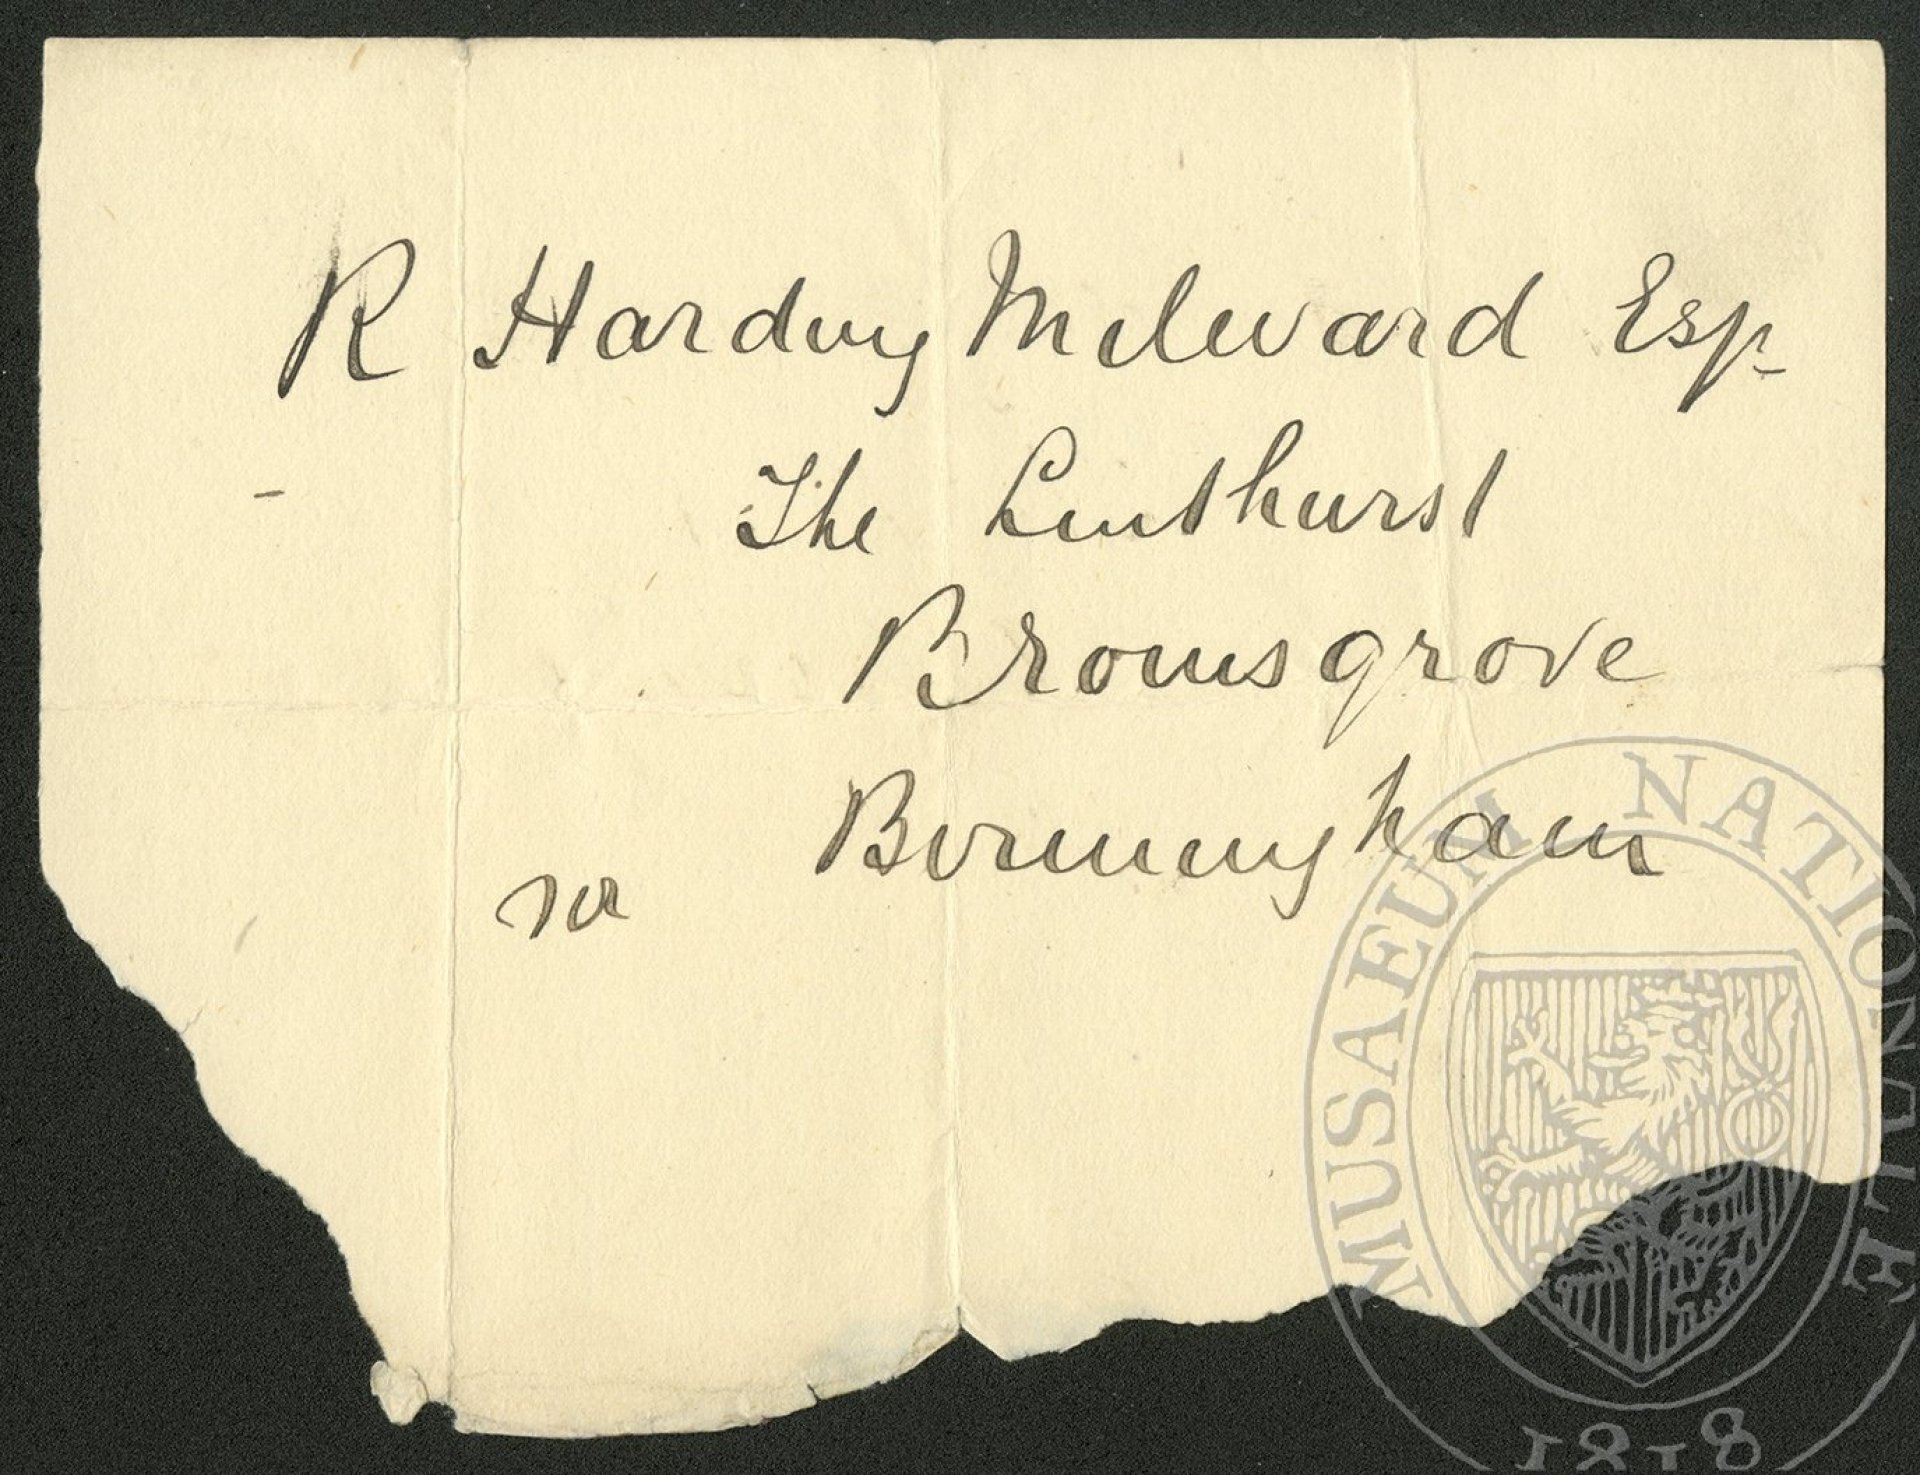 R Harding Milward Esq
The Linthurst
Bromsgrove
Birmingham
nr
MUSAEUM NATIONALE
1818